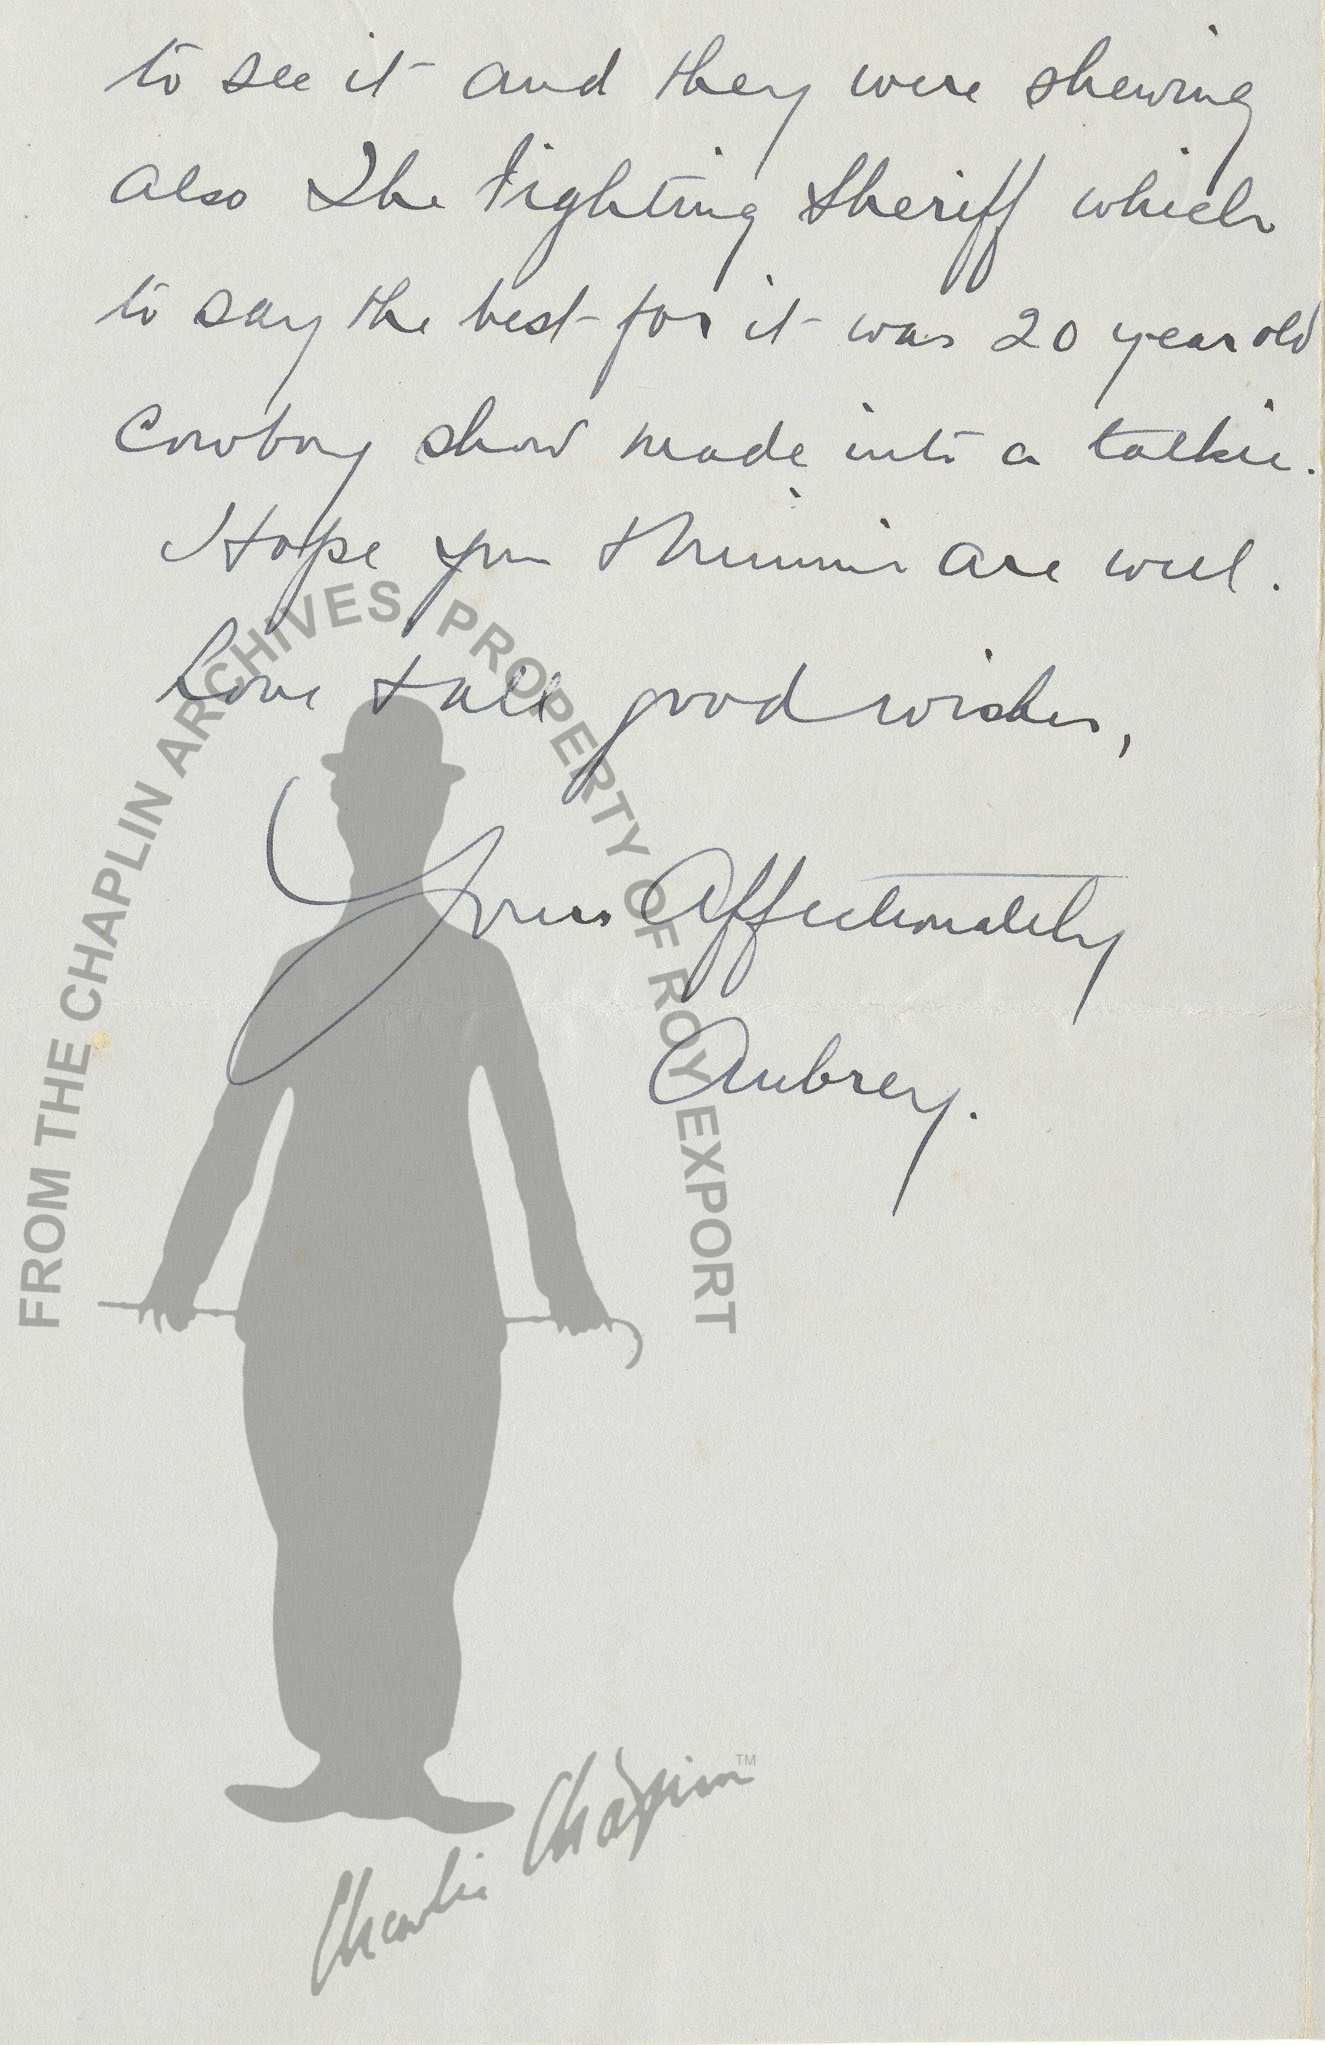 to see it and they were shewing
also The Fighting Sheriff which
to say the best for it was 20 year old
Cowboy show made into a talkie.
Hope you & Minnie are well.
Love & all good wishes,
Yours Affectionately
Aubrey.
FROM THE CHAPLIN ARCHIVES, PROPERTY OF ROY EXPORT
Charlie Chaplin TM